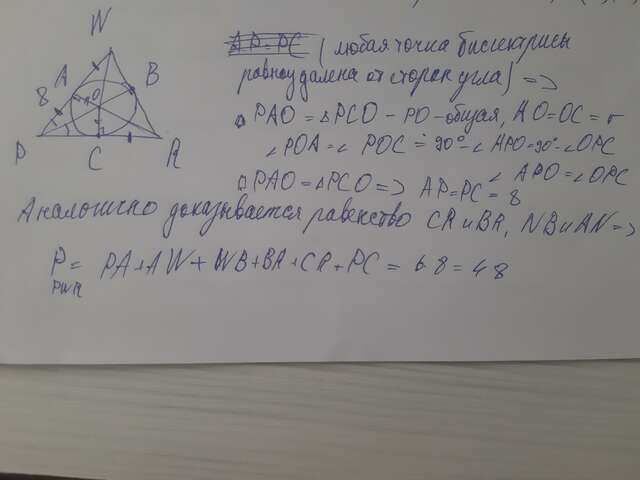 W
A
B
8
O
P
C
R
AP = PC (любая точка биссектрисы
равноудалена от сторон угла) =>
△PAO = △PCO - PO - общая, AO=OC = r
∠POA = ∠POC = 90° - ∠APO = 90° - ∠OPC
∠APO = ∠OPC
△PAO = △PCO => AP = PC = 8
Аналогично доказывается равенство CR и BR, NB и AN =>
P = PA + AW + WB + BR + CR + PC = 6·8 = 48
PWR